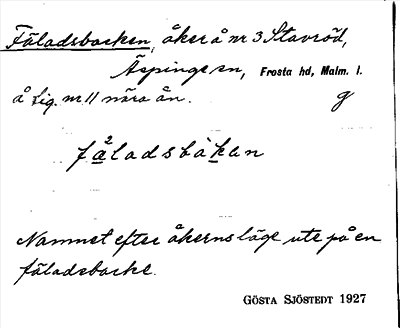 Fäladsbacken, åker å nr 3 Stavröd,
Äspinge sn, Frosta hd, Malm. l.
å Lig. nr 11 nära ån. g
fåladsbàkan
Namnet efter åkerns läge ute på en
fäladsbacke.
GÖSTA SJÖSTEDT 1927